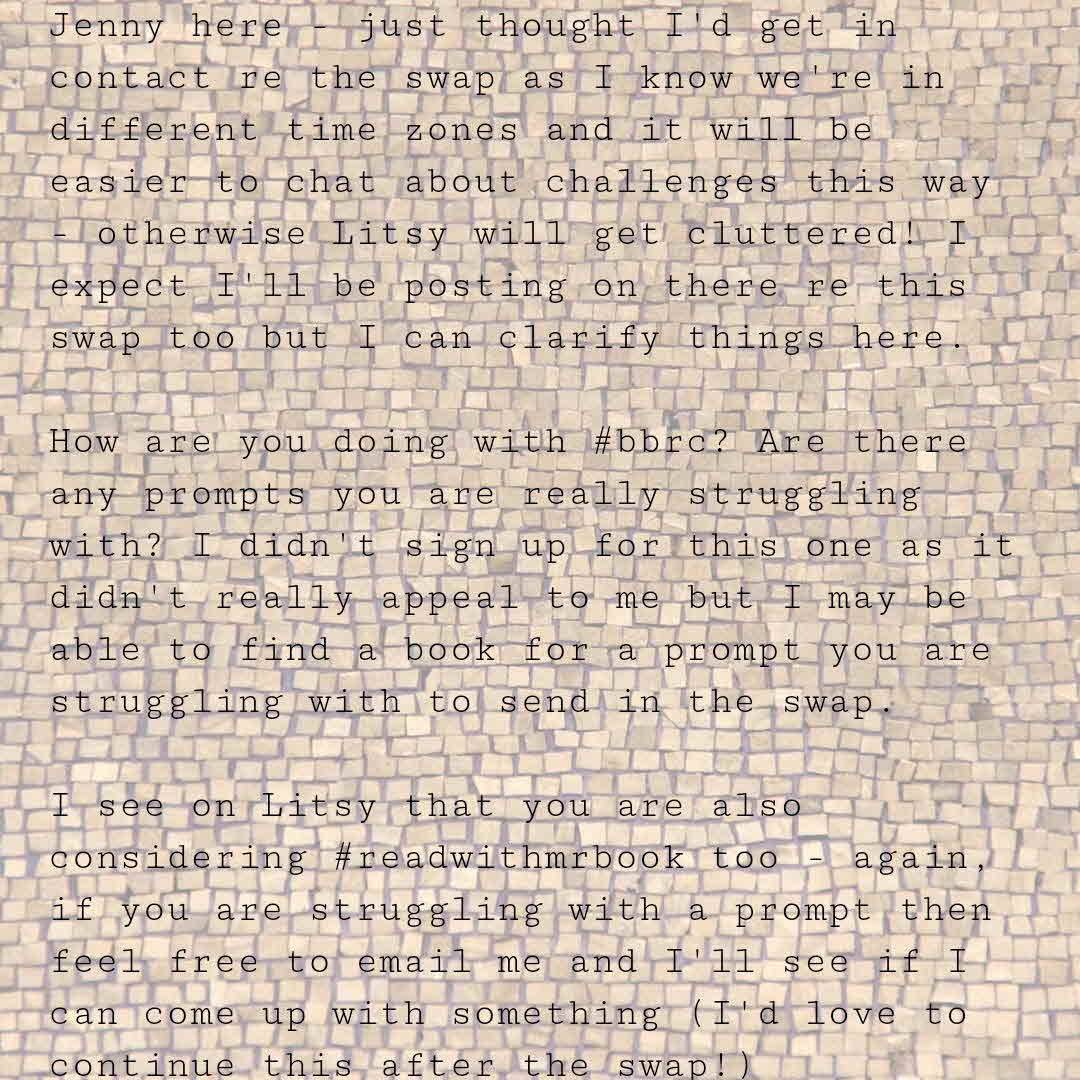 Jenny here - just thought I'd get in
contact re the swap as I know we're in
different time zones and it will be
easier to chat about challenges this way
- otherwise Litsy will get cluttered! I
expect I'll be posting on there re this
swap too but I can clarify things here.
How are you doing with #bbrc? Are there
any prompts you are really struggling
with? I didn't sign up for this one as it
didn't really appeal to me but I may be
able to find a book for a prompt you are
struggling with to send in the swap.
I see on Litsy that you are also
considering #readwithmrbook too - again,
if you are struggling with a prompt then
feel free to email me and I'll see if I
can come up with something (I'd love to
continue this after the swap!)